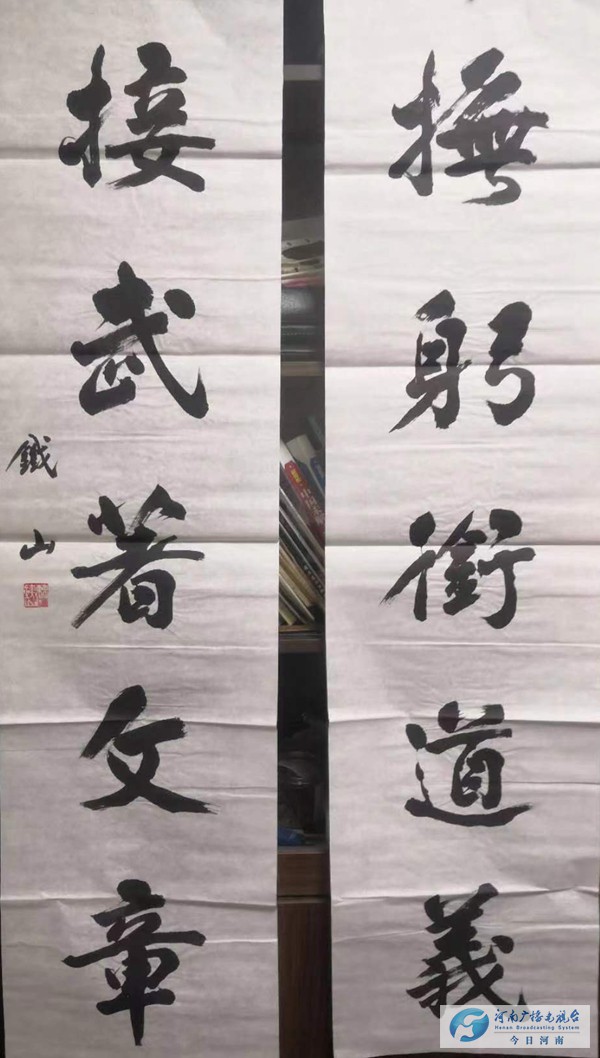 撫躬銜道義
接武著文章
鐵山
河南广播电视台
Henan Broadcasting System
今日河南